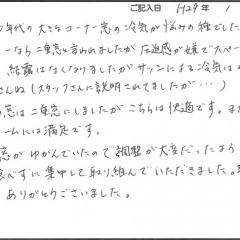 ご記入日 H29年 1
0年代の大きなコーナー窓の冷気が悩みの種でした
ーなら二重窓と言われましたが圧迫感が嫌でスペー
結露はなくなりましたがサッシによる冷気は
せんね(スタッフさんに説明されてましたが…)
の窓は二重窓にしましたがこちらは快適です。また
ームには満足です。
窓がゆがんでいたので調整が大変だったよう
食べずに集中して取り組んでいただきました。
ありがとうございました。